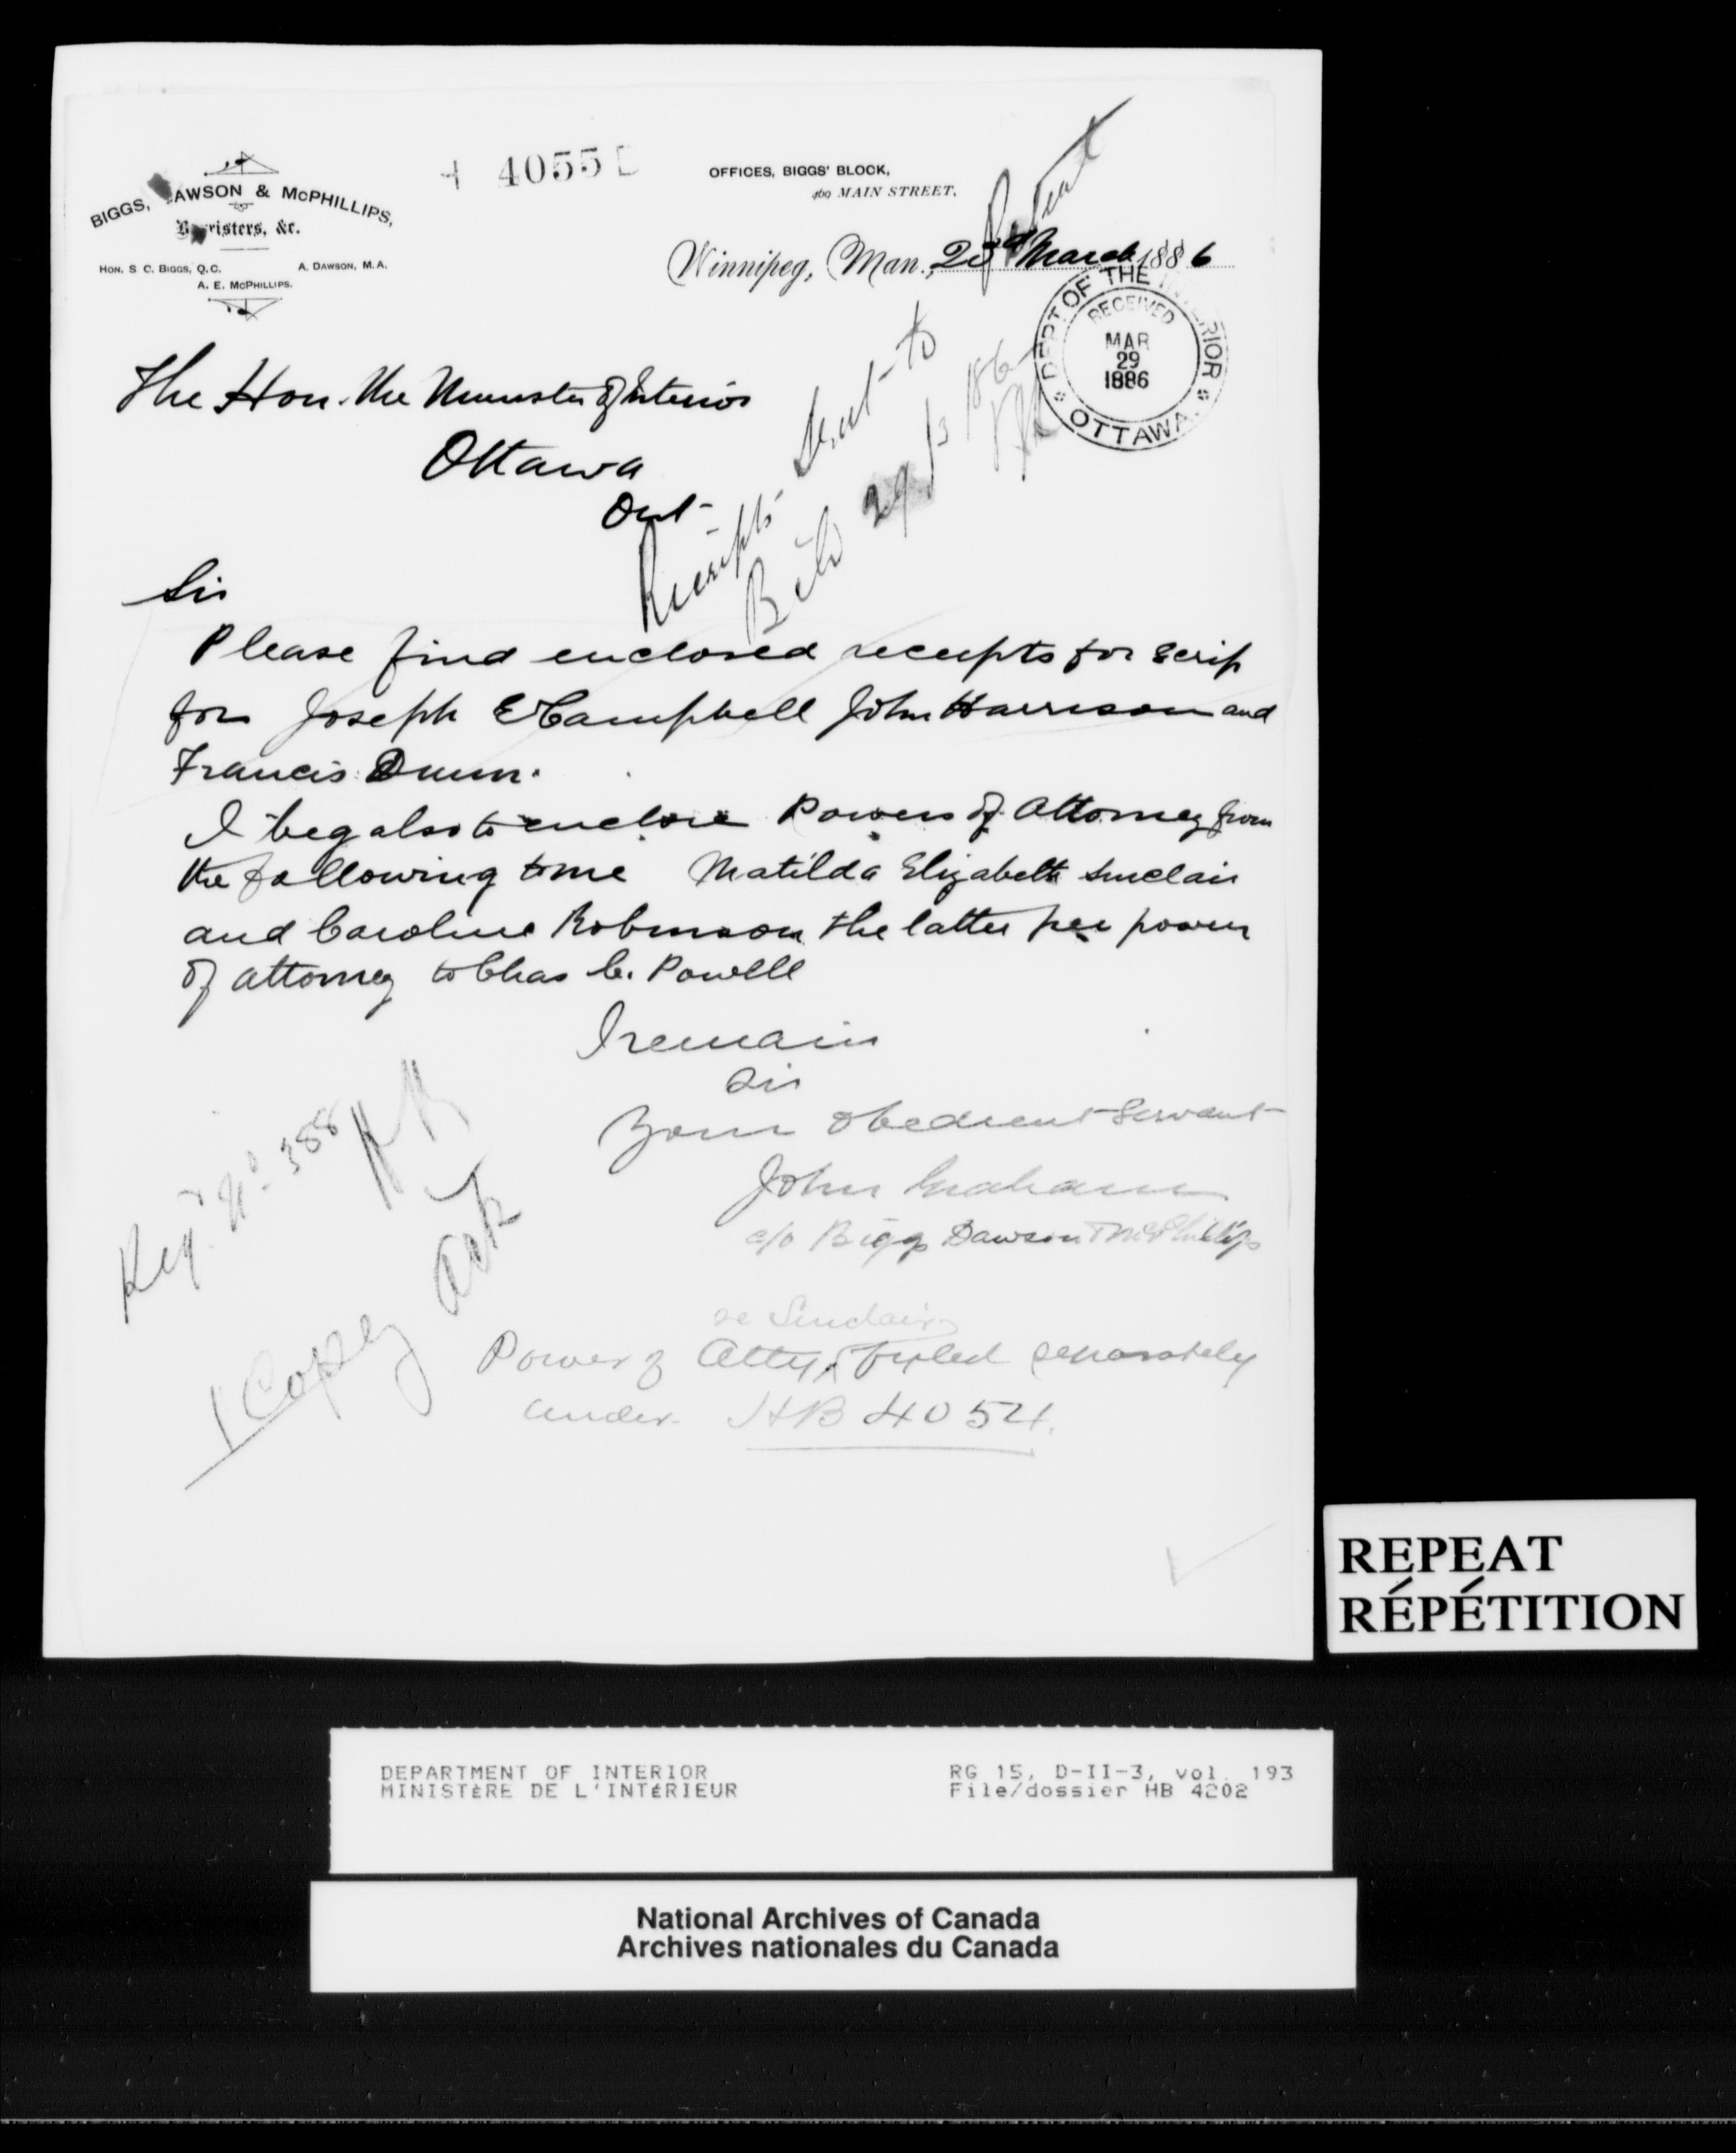 4055
BIGGS, DAWSON & McPHILLIPS,
Barristers, &c.
HON. S C. BIGGS, Q.C. A. DAWSON, M.A.
A. E. McPHILLIPS.
OFFICES, BIGGS' BLOCK,
469 MAIN STREET,
Winnipeg, Man., 23d March 1886
DEPT. OF THE INTERIOR
RECEIVED
MAR
29
1886
OTTAWA.
The Hon. the Minister of Interior
Ottawa
Ont-
Receipts sent to
29/3/86
Sir
Please find enclosed receipts for scrip
for Joseph E Campbell John Harrison and
Francis Dunn.
I beg also to enclose Powers of Attorney from
the following to me Matilda Elizabeth Sinclair
and Caroline Robinson the latter per power
of attorney to Chas C. Powell
I remain
Sir
Your obedient Servant
John Graham
c/o Biggs Dawson & McPhillips
Reg. No. 388
Ack
1 Copy
re Sinclair
Power of Atty fyled separately
under HB 4054.
REPEAT
RÉPÉTITION
DEPARTMENT OF INTERIOR RG 15, D-II-3, vol. 193
MINISTÈRE DE L'INTÉRIEUR File/dossier HB 4202
National Archives of Canada
Archives nationales du Canada